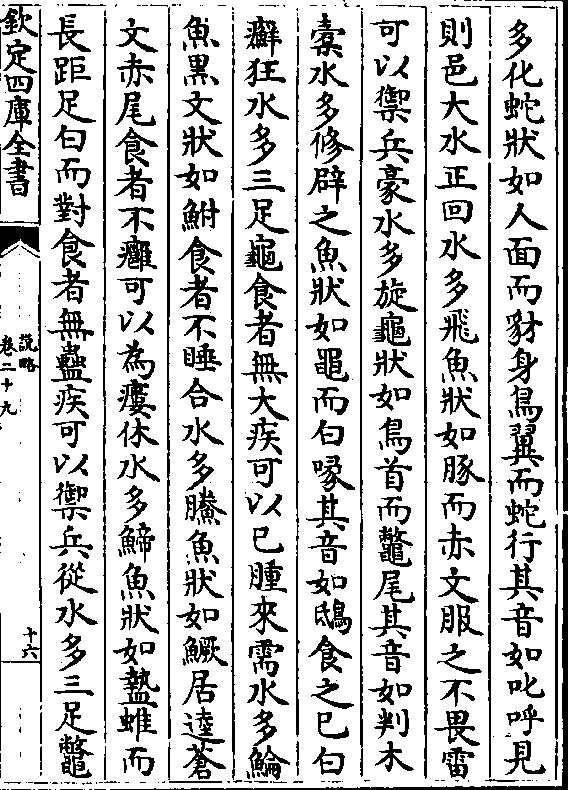 多化蛇狀如人面而豺身鳥翼而蛇行其音如叱呼見
則邑大水正回水多飛魚狀如豚而赤文服之不畏雷
可以禦兵豪水多旋龜狀如鳥首而鼈尾其音如判木
橐水多修辟之魚狀如黽而白喙其音如鴟食之已白
癬狂水多三足龜食者無大疾可以已腫來需水多鯩
魚黒文狀如鮒食者不睡合水多騰魚狀如鱖居逵蒼
文赤尾食者不癰可以為瘻休水多鯑魚狀如蟄蜼而
長距足白而對食者無蠱疾可以禦兵從水多三足鼈
欽定四庫全書
說略
卷二十九
十六